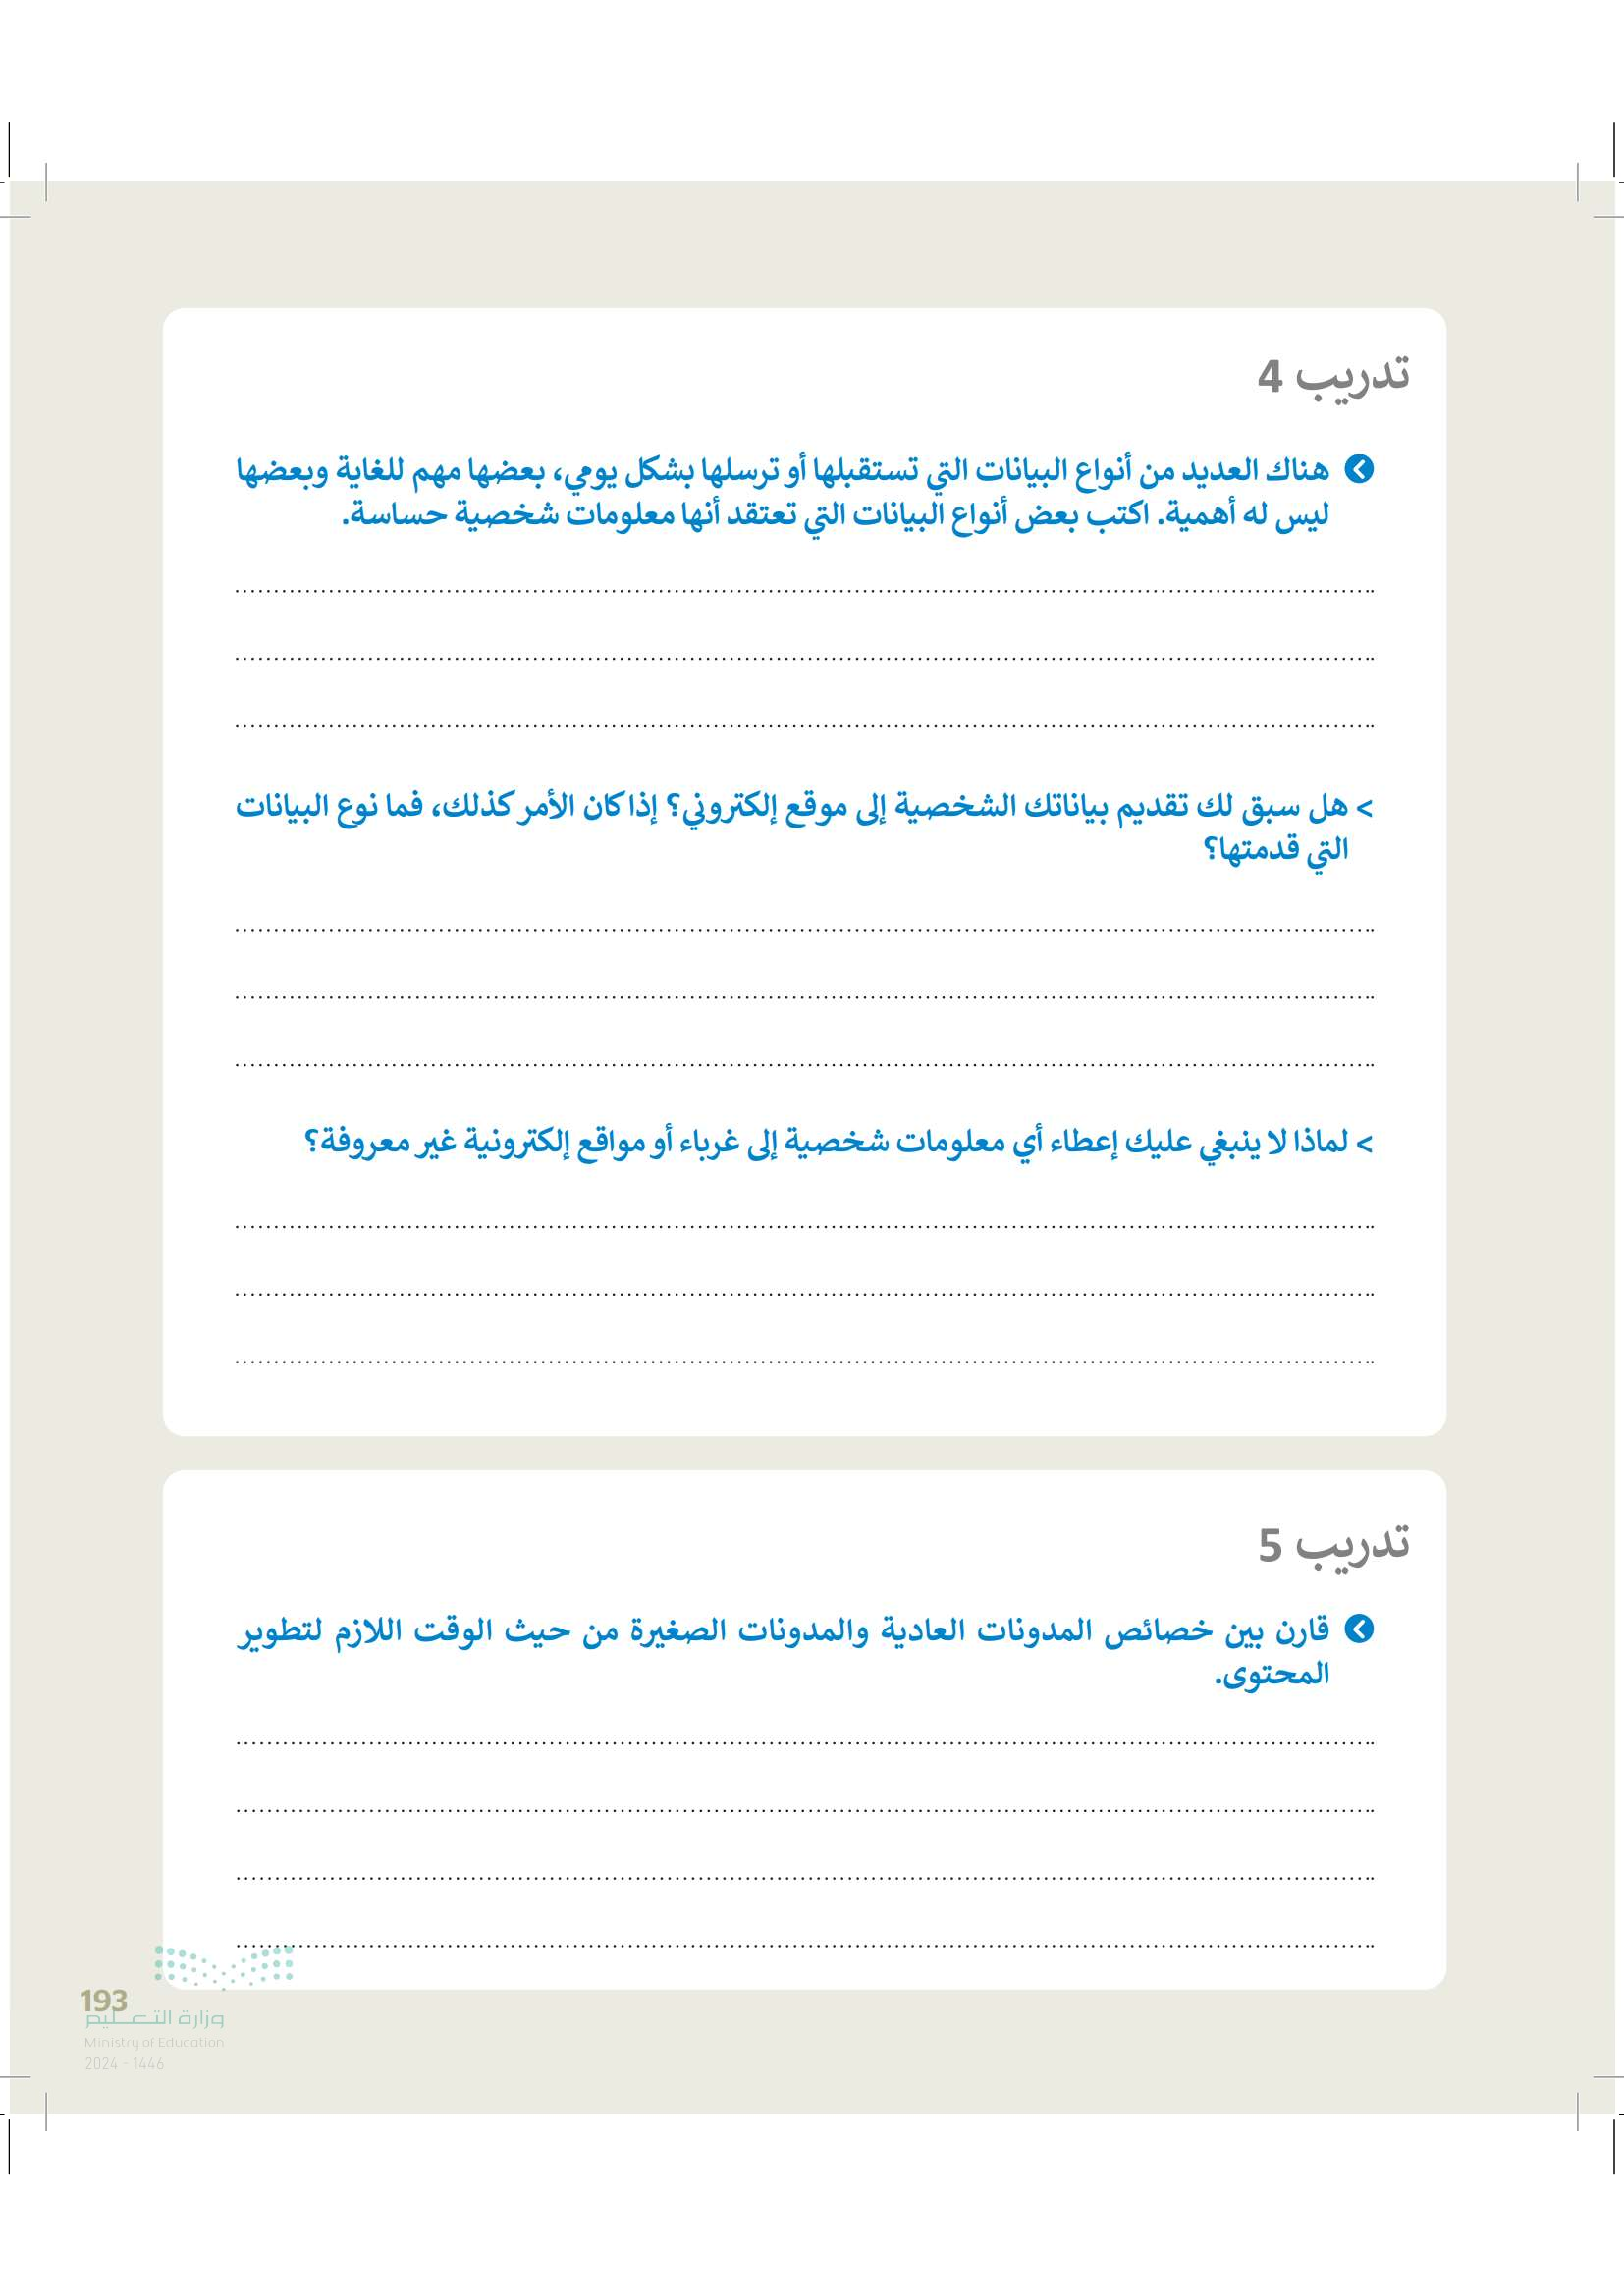 تدريب 4
هناك العديد من أنواع البيانات التي تستقبلها أو ترسلها بشكل يومي، بعضها مهم للغاية وبعضها
ليس له أهمية. اكتب بعض أنواع البيانات التي تعتقد أنها معلومات شخصية حساسة.
> هل سبق لك تقديم بياناتك الشخصية إلى موقع إلكتروني؟ إذا كان الأمر كذلك، فما نوع البيانات
التي قدمتها؟
> لماذا لا ينبغي عليك إعطاء أي معلومات شخصية إلى غرباء أو مواقع إلكترونية غير معروفة؟
تدريب 5
قارن بين خصائص المدونات العادية والمدونات الصغيرة من حيث الوقت اللازم لتطوير
المحتوى.
193
وزارة التعليم
Ministry of Education
2024 - 1446